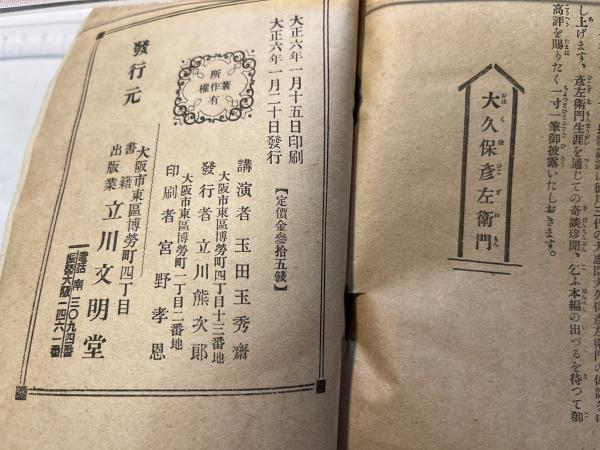 し上げます、彦左衛門生涯を通じての奇談珍聞、乞ふ本編の出づるを待つて御
高評を賜りたく一寸一筆御披露いたしおきます。
大久保彦左衛門
おほくぼひこざゑもん
大正六年一月十五日印刷
大正六年一月二十日發行
【定價金參拾五錢】
著作權所有
講演者 玉田玉秀齋
大阪市東區博勞町四丁目十三番地
發行者 立川熊次郎
大阪市東區博勞町一丁目二番地
印刷者 宮野孝恩
發行元
大阪市東區博勞町四丁目
書籍出版業 立川文明堂
電話 南 三〇九四番
振替大阪一四六一番